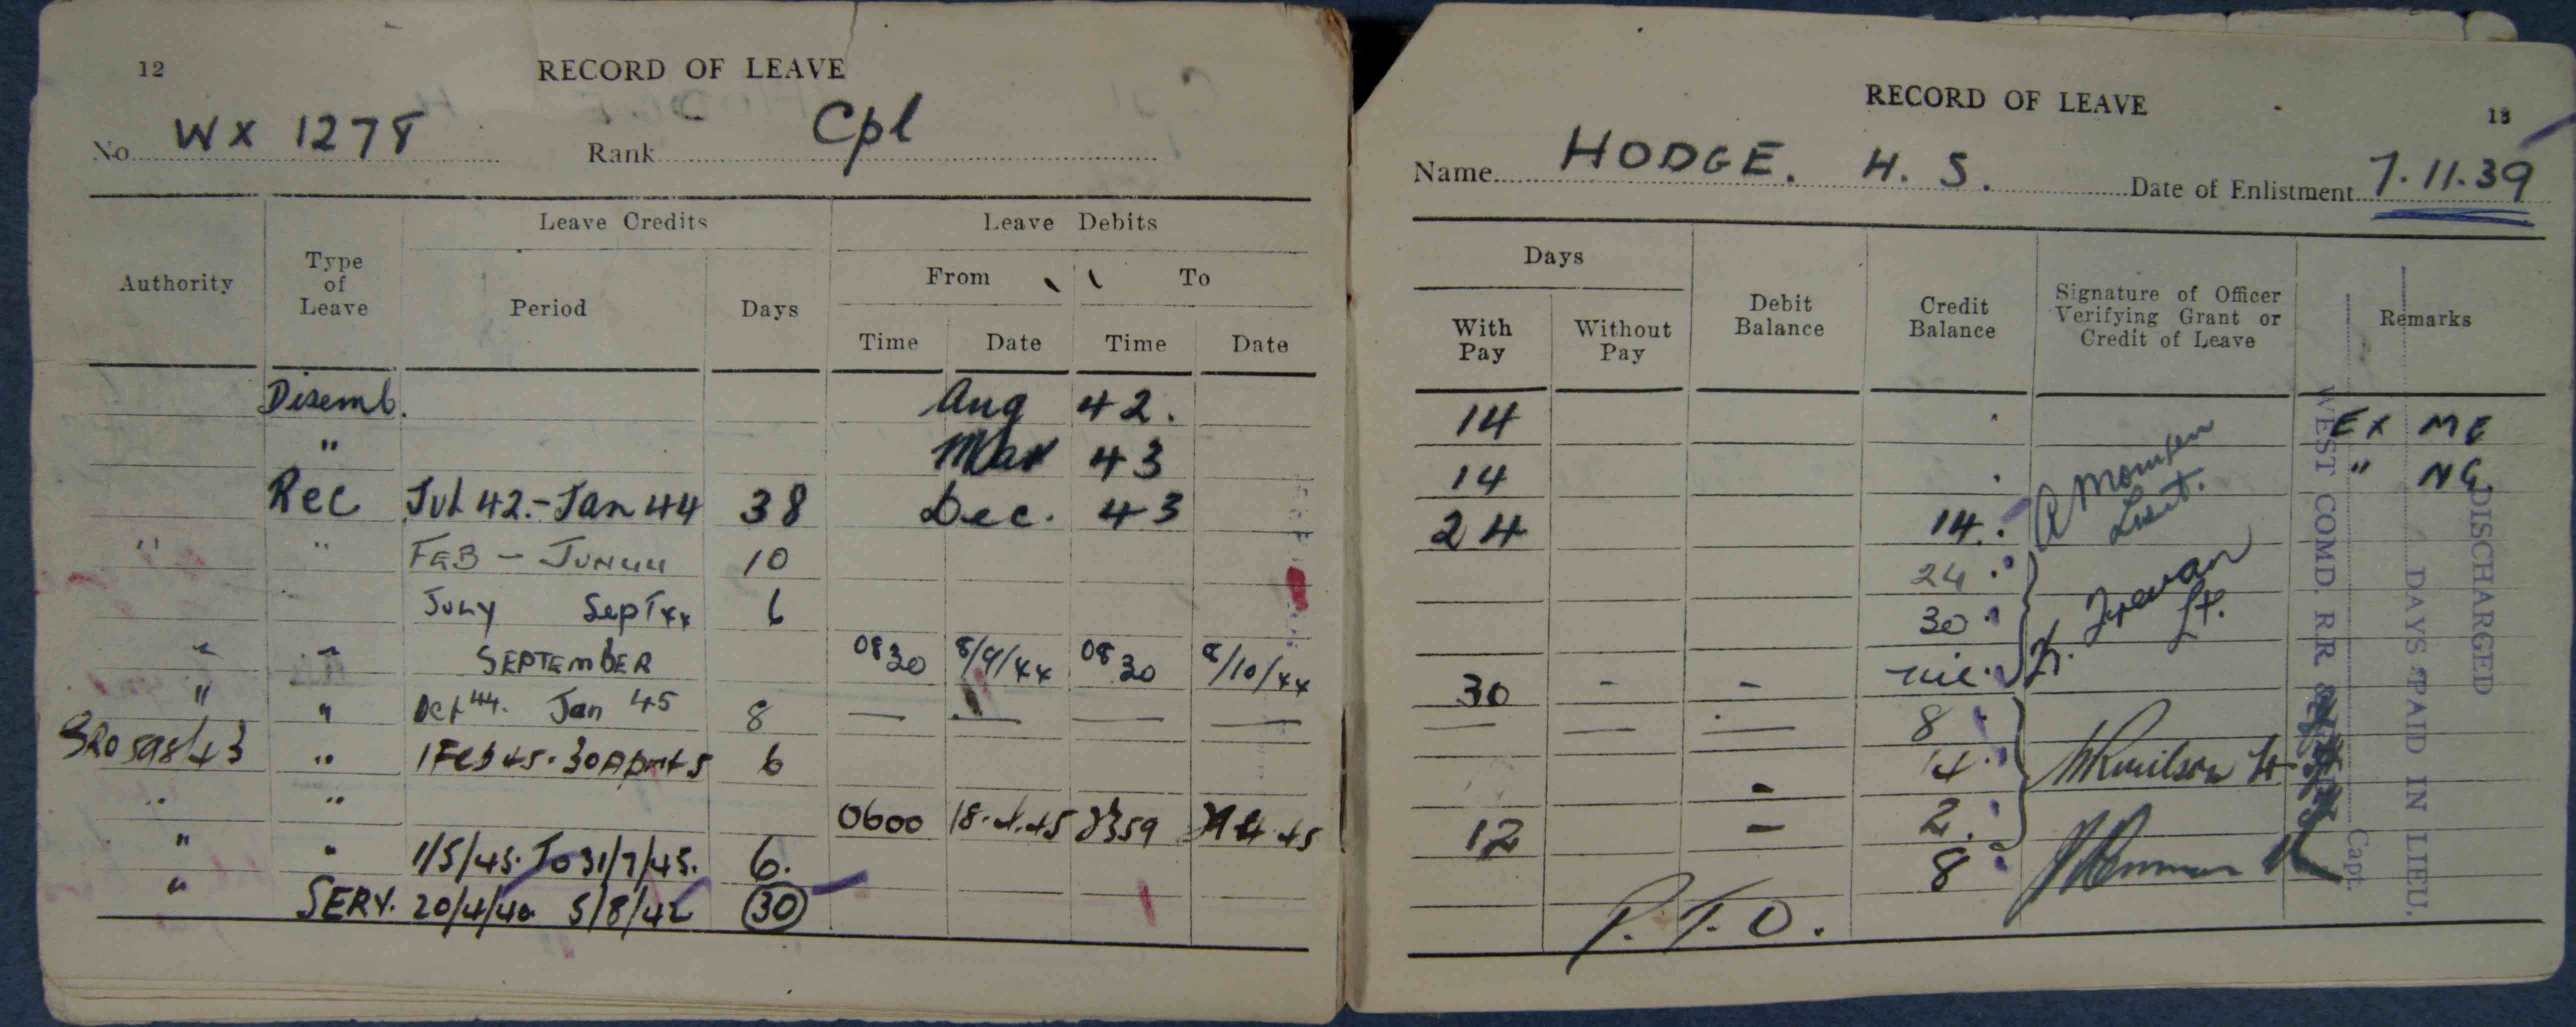 12
RECORD OF LEAVE
No. WX 1278 Rank Cpl
Authority Type of Leave Leave Credits Leave Debits
Period Days From To
Time Date Time Date
Disemb. Aug 42.
" Mar 43
Rec Jul 42.-Jan 44 38 Dec. 43
" " FEB - JUN 44 10
JULY SepT 44 6
" " SEPTEMBER 0830 8/9/44 0830 8/10/44
" " Oct 44. Jan 45 8 — — — —
" 1 Feb 45. 30 Apr 45 6
" " 0600 18.4.45 2359 4.45
" " 1/5/45. To 31/7/45. 6.
" SERV. 20/4/40 5/8/42 30
RECORD OF LEAVE
13
Name HODGE. H. S. Date of Enlistment 7.11.39
Days Debit Balance Credit Balance Signature of Officer Verifying Grant or Credit of Leave Remarks
With Pay Without Pay
14 EX ME
14 " NG.
24 14. Lieut.
24
30 Lt.
30 - - nil.
— — — 8
- 14
12 - 2.
8
P.T.O.
DISCHARGED
DAYS PAID IN LIEU.
WEST COMD. R.R
Capt.